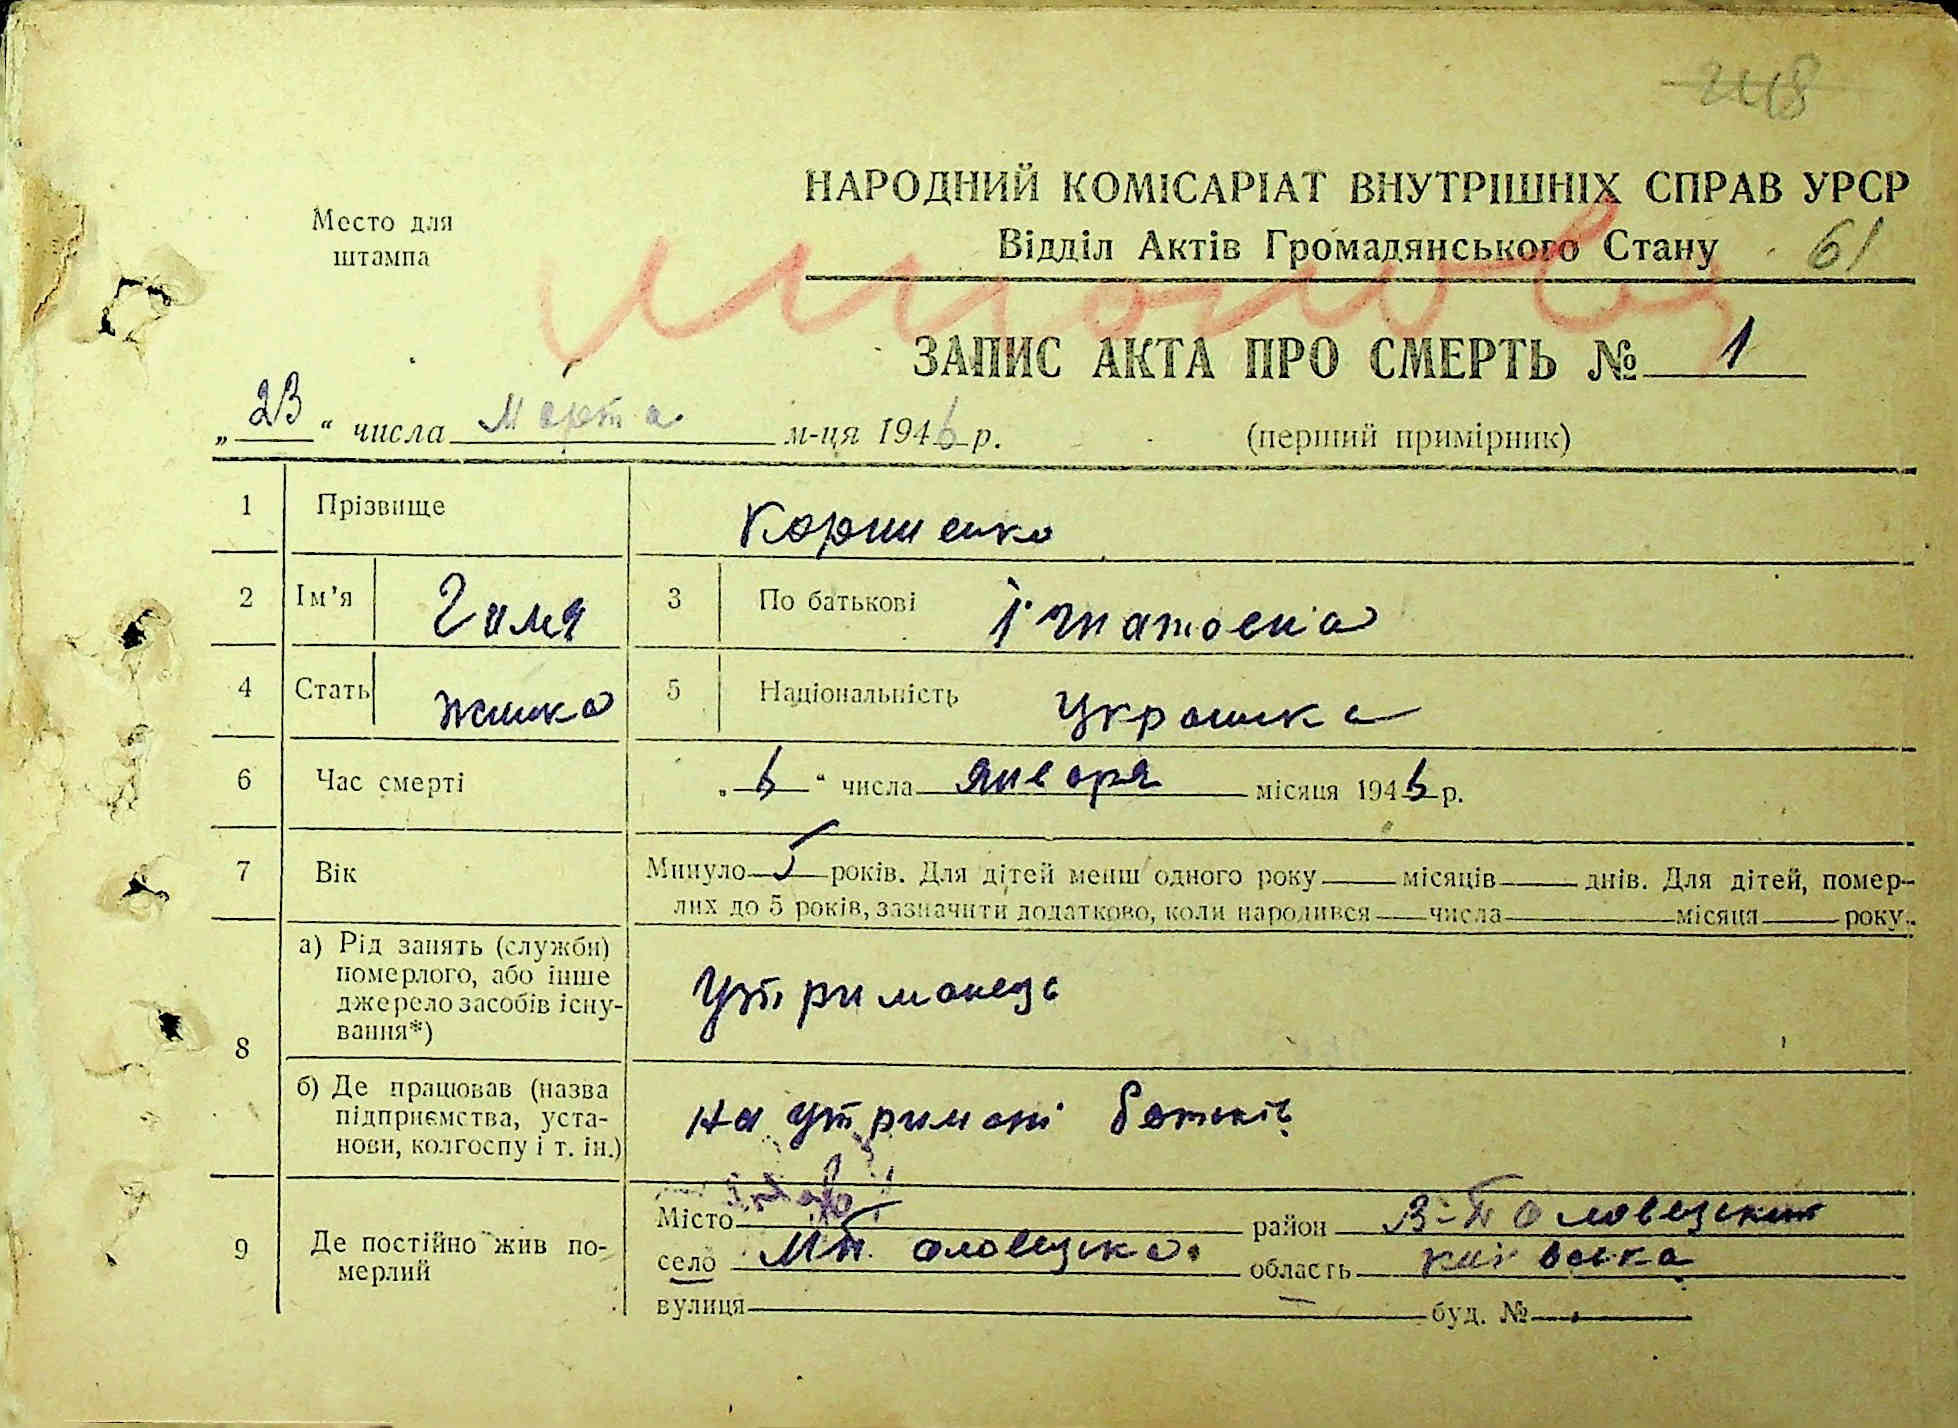 248
НАРОДНИЙ КОМІСАРІАТ ВНУТРІШНІХ СПРАВ УРСР
Место для
штампа
Відділ Актів Громадянського Стану 61
ЗАПИС АКТА ПРО СМЕРТЬ № 1
„23“ числа Марта м-ця 1946 р. (перший примірник)
1 Прізвище Корниенко
2 Ім'я Галя 3 По батькові Ігнатовна
4 Стать жінка 5 Національність Українка
6 Час смерті „6“ числа января місяця 1946 р.
7 Вік Минуло 5 років. Для дітей менш одного року місяців днів. Для дітей, помер-
лих до 5 років, зазначити додатково, коли народився числа місяця року.
8 а) Рід занять (служби)
померлого, або інше
джерело засобів існу-
вання*) Утриманець
б) Де працював (назва
підприємства, уста-
нови, колгоспу і т. ін.) на утримані батьків
9 Де постійно жив по-
мерлий
Місто район В-Половецький
село МП.оловецьке область київська
вулиця буд. №